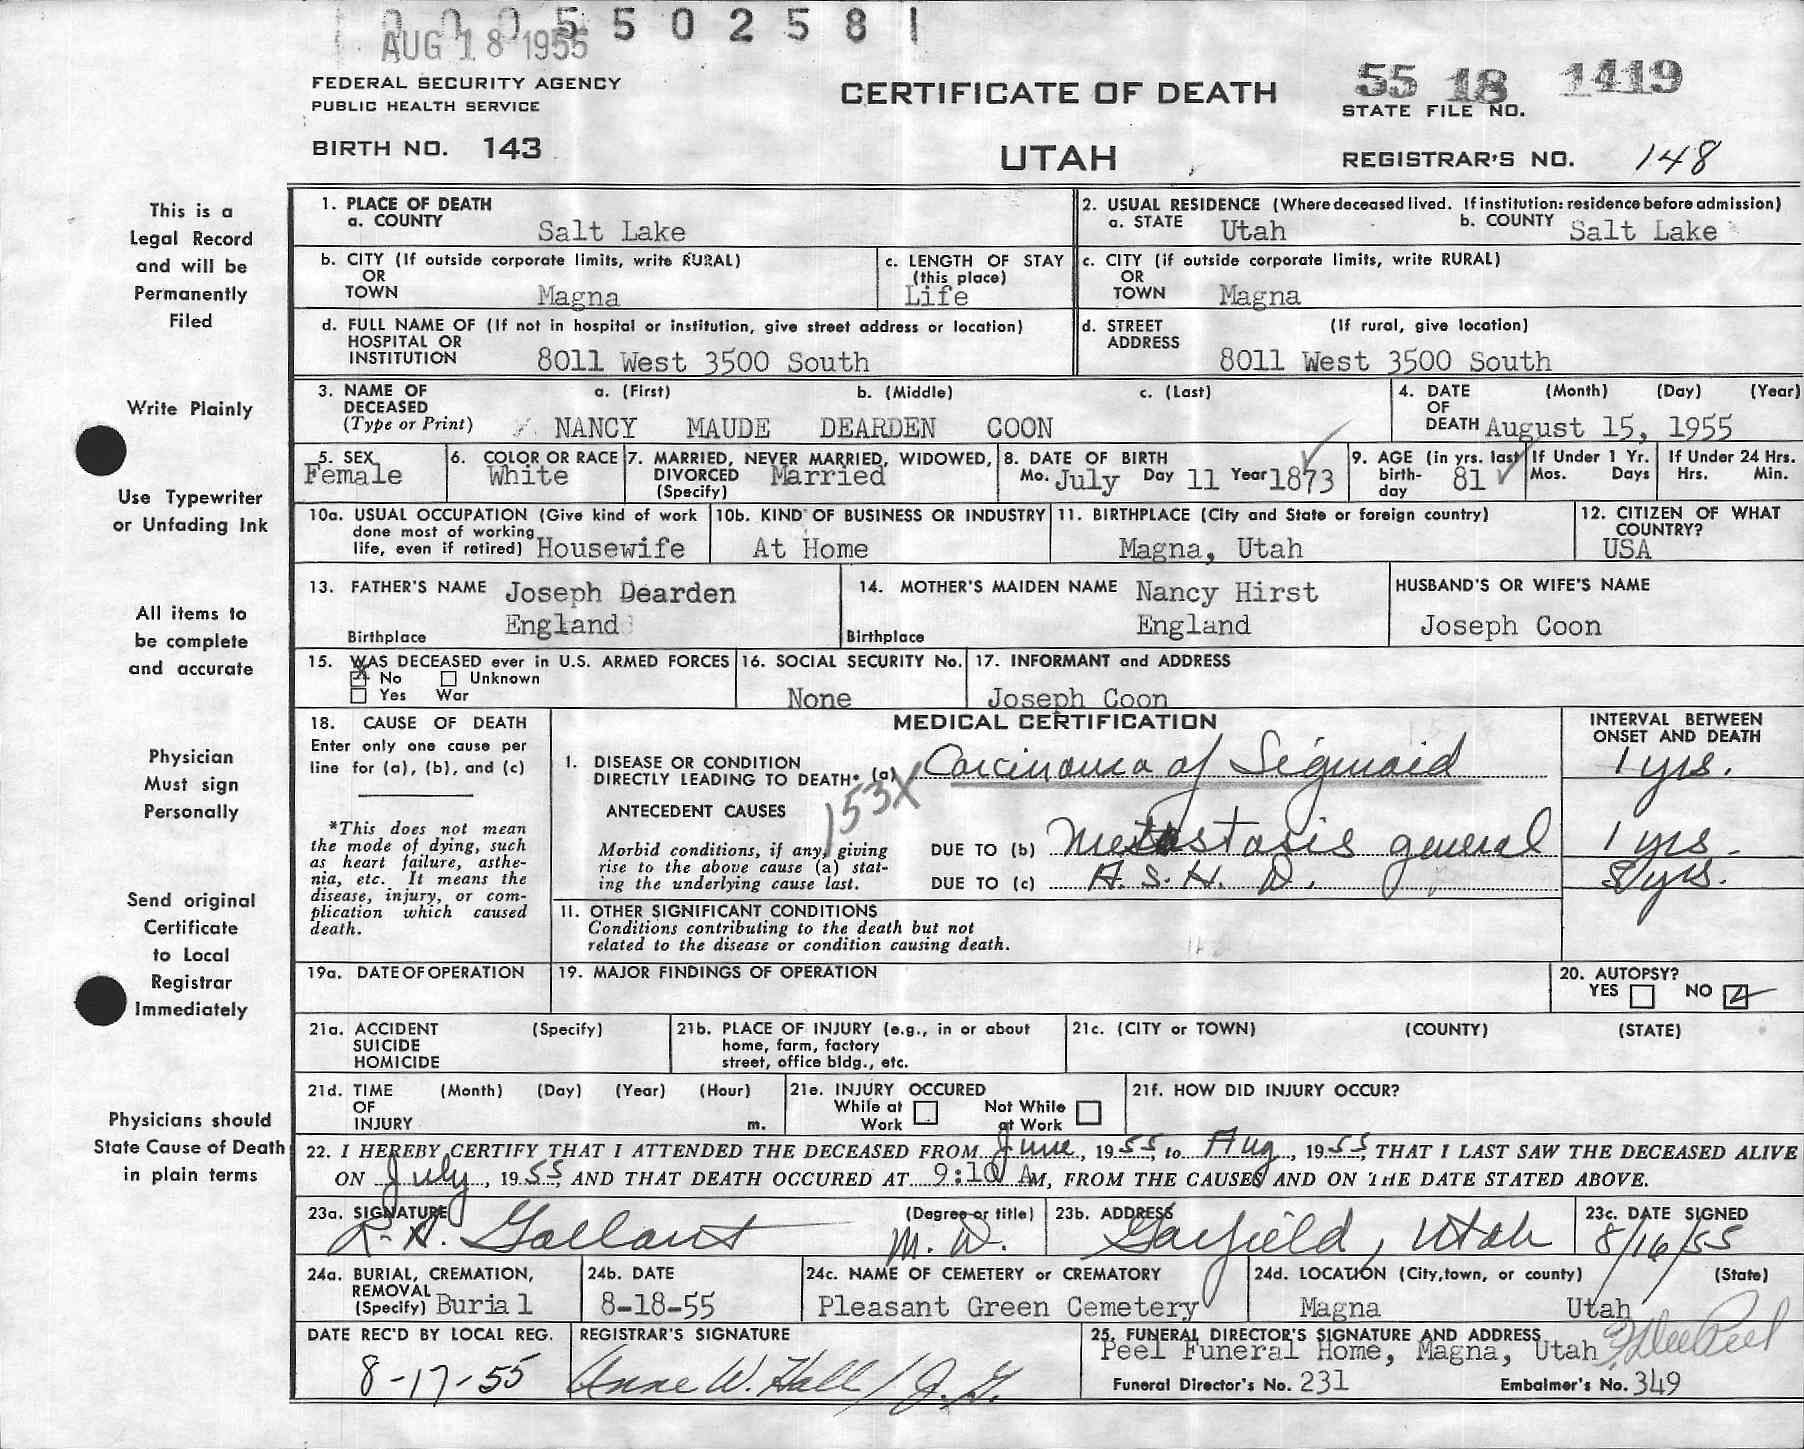 0 0 0 5 5 0 2 5 8 1
AUG 18 1955
FEDERAL SECURITY AGENCY
PUBLIC HEALTH SERVICE
BIRTH NO. 143
CERTIFICATE OF DEATH
UTAH
55 18 1419
STATE FILE NO.
REGISTRAR'S NO. 148
This is a
Legal Record
and will be
Permanently
Filed
Write Plainly
Use Typewriter
or Unfading Ink
All items to
be complete
and accurate
Physician
Must sign
Personally
Send original
Certificate
to Local
Registrar
Immediately
Physicians should
State Cause of Death
in plain terms
1. PLACE OF DEATH
a. COUNTY Salt Lake
2. USUAL RESIDENCE (Where deceased lived. If institution: residence before admission)
a. STATE Utah b. COUNTY Salt Lake
b. CITY (If outside corporate limits, write RURAL)
OR
TOWN Magna
c. LENGTH OF STAY
(this place)
Life
c. CITY (if outside corporate limits, write RURAL)
OR
TOWN Magna
d. FULL NAME OF (If not in hospital or institution, give street address or location)
HOSPITAL OR
INSTITUTION 8011 West 3500 South
d. STREET (If rural, give location)
ADDRESS
8011 West 3500 South
3. NAME OF a. (First) b. (Middle) c. (Last)
DECEASED
(Type or Print) NANCY MAUDE DEARDEN COON
4. DATE (Month) (Day) (Year)
OF
DEATH August 15, 1955
5. SEX
Female
6. COLOR OR RACE
White
7. MARRIED, NEVER MARRIED, WIDOWED,
DIVORCED Married
(Specify)
8. DATE OF BIRTH
Mo. July Day 11 Year 1873
9. AGE (in yrs. last
birth- 81
day
If Under 1 Yr.
Mos. Days
If Under 24 Hrs.
Hrs. Min.
10a. USUAL OCCUPATION (Give kind of work
done most of working
life, even if retired) Housewife
10b. KIND OF BUSINESS OR INDUSTRY
At Home
11. BIRTHPLACE (City and State or foreign country)
Magna, Utah
12. CITIZEN OF WHAT
COUNTRY?
USA
13. FATHER'S NAME Joseph Dearden
Birthplace England
14. MOTHER'S MAIDEN NAME Nancy Hirst
Birthplace England
HUSBAND'S OR WIFE'S NAME
Joseph Coon
15. WAS DECEASED ever in U.S. ARMED FORCES
X No Unknown
Yes War
16. SOCIAL SECURITY No.
None
17. INFORMANT and ADDRESS
Joseph Coon
18. CAUSE OF DEATH
Enter only one cause per
line for (a), (b), and (c)
*This does not mean
the mode of dying, such
as heart failure, asthe-
nia, etc. It means the
disease, injury, or com-
plication which caused
death.
MEDICAL CERTIFICATION
INTERVAL BETWEEN
ONSET AND DEATH
1. DISEASE OR CONDITION
DIRECTLY LEADING TO DEATH* (a) Carcinoma of Sigmoid 1 yrs.
153X
ANTECEDENT CAUSES
Morbid conditions, if any, giving
rise to the above cause (a) stat-
ing the underlying cause last.
DUE TO (b) Metastasis general 1 yrs.
DUE TO (c) A. S. H. D. 8 yrs.
11. OTHER SIGNIFICANT CONDITIONS
Conditions contributing to the death but not
related to the disease or condition causing death.
19a. DATE OF OPERATION
19. MAJOR FINDINGS OF OPERATION
20. AUTOPSY?
YES NO
21a. ACCIDENT (Specify)
SUICIDE
HOMICIDE
21b. PLACE OF INJURY (e.g., in or about
home, farm, factory
street, office bldg., etc.
21c. (CITY or TOWN) (COUNTY) (STATE)
21d. TIME (Month) (Day) (Year) (Hour)
OF
INJURY m.
21e. INJURY OCCURED
While at Not While
Work at Work
21f. HOW DID INJURY OCCUR?
22. I HEREBY CERTIFY THAT I ATTENDED THE DECEASED FROM June, 1955, to Aug, 1955, THAT I LAST SAW THE DECEASED ALIVE
ON July, 1955, AND THAT DEATH OCCURED AT 9:10 AM, FROM THE CAUSES AND ON THE DATE STATED ABOVE.
23a. SIGNATURE (Degree or title)
R. H. Gallant M. D.
23b. ADDRESS
Garfield, Utah
23c. DATE SIGNED
8/16/55
24a. BURIAL, CREMATION,
REMOVAL
(Specify) Burial
24b. DATE
8-18-55
24c. NAME OF CEMETERY or CREMATORY
Pleasant Green Cemetery
24d. LOCATION (City, town, or county) (State)
Magna Utah
DATE REC'D BY LOCAL REG.
8-17-55
REGISTRAR'S SIGNATURE
Anne W. Hall / J. G.
25. FUNERAL DIRECTOR'S SIGNATURE AND ADDRESS
Peel Funeral Home, Magna, Utah
Funeral Director's No. 231 Embalmer's No. 349